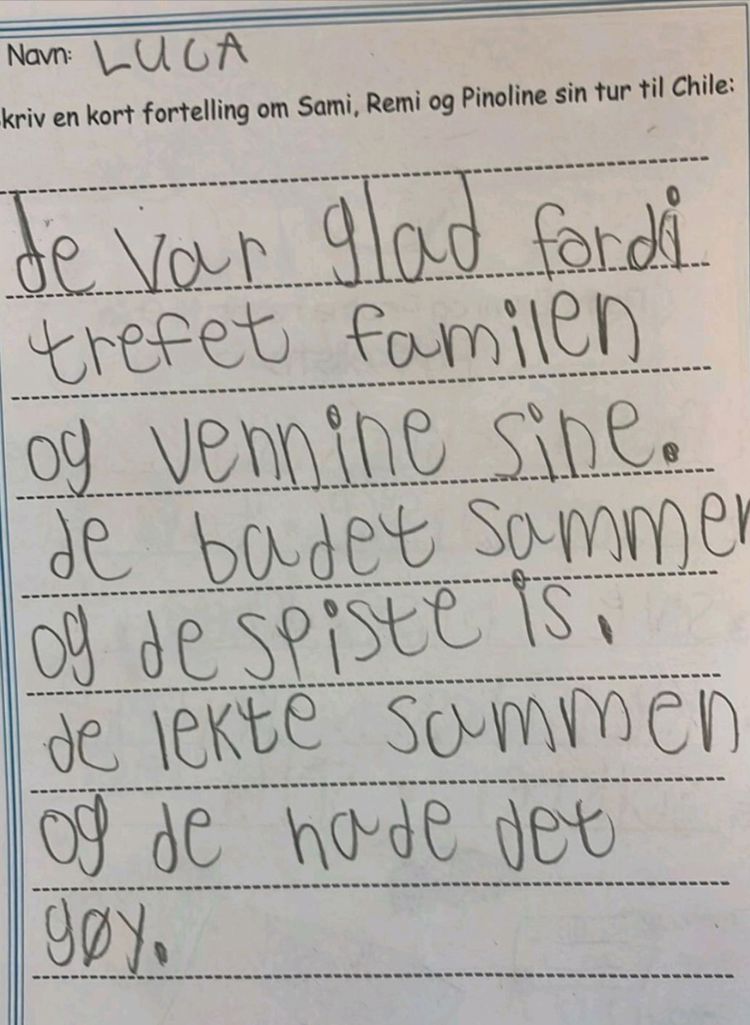 Navn: LUCA
kriv en kort fortelling om Sami, Remi og Pinoline sin tur til Chile:
de var glad fordi
trefet familen
og vennine sine.
de badet sammen
og de spiste is.
de lekte sammen
og de hade det
gøy.